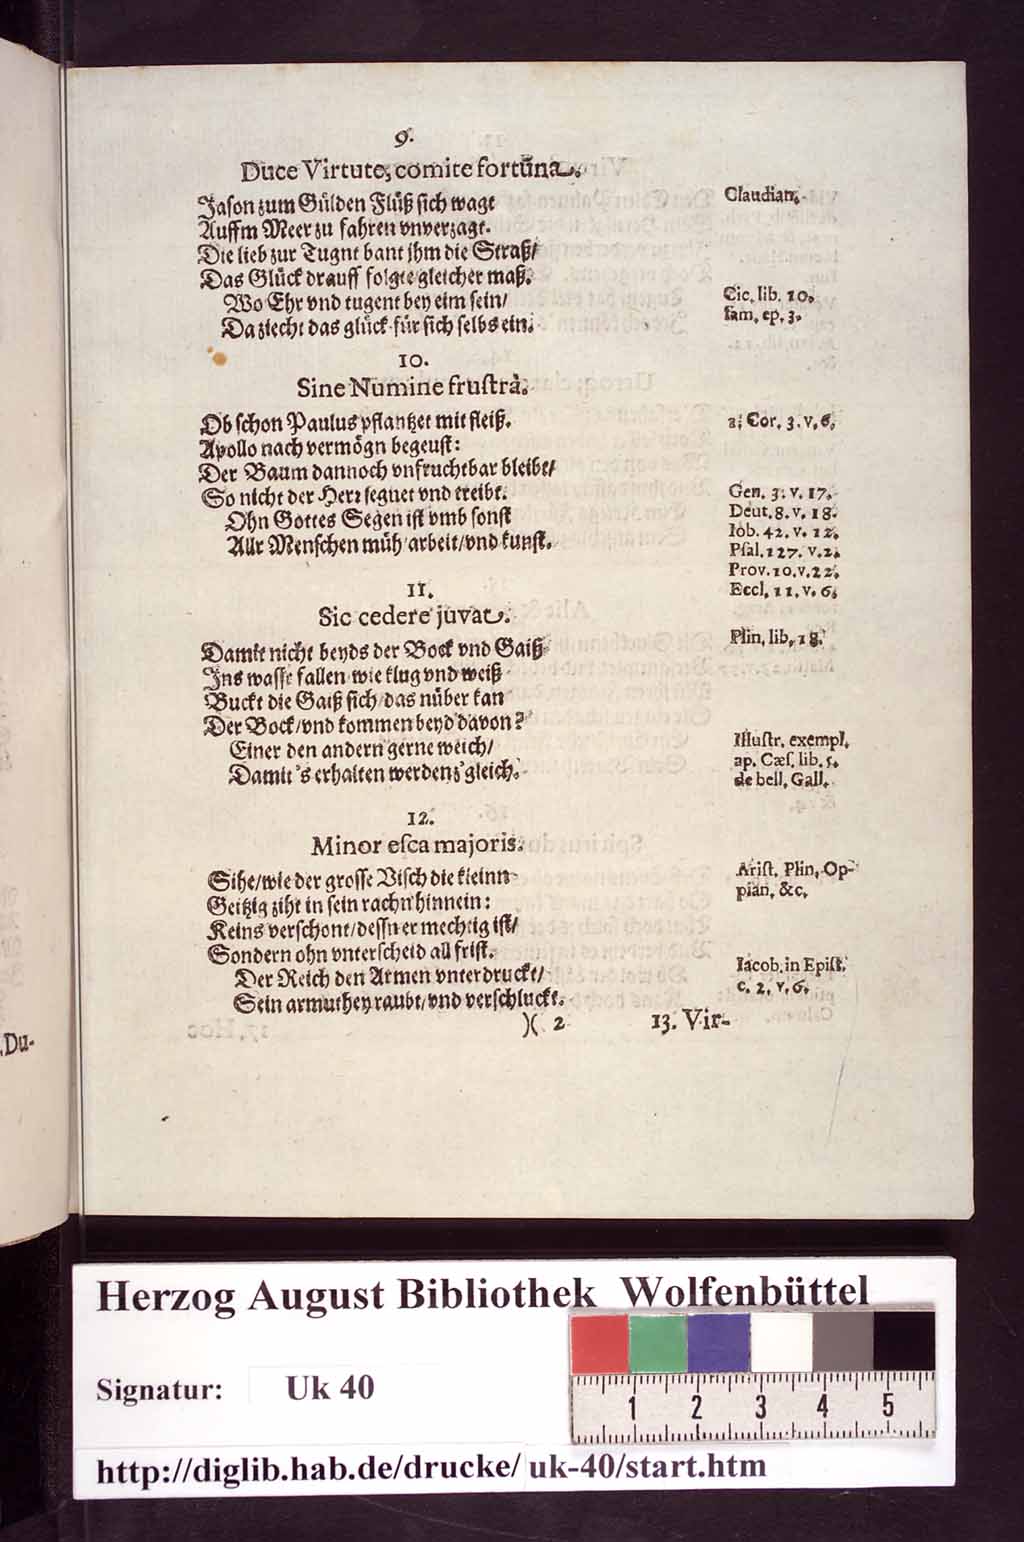 9.
Duce Virtute, comite fortūna.
Jason zum Gülden Flüß sich wagt
Claudian.
Auffm Meer zu fahren vnverzagt.
Die lieb zur Tugnt bant jhm die Straß/
Das Glück drauff folgte gleicher maß.
Wo Ehr vnd tugent bey eim sein/
Cic. lib. 10.
Da ziecht das glück für sich selbs ein.
fam. ep. 3.
10.
Sine Numine frustrà.
Ob schon Paulus pflantzet mit fleiß.
Cor. 3. v. 6.
Apollo nach vermögn begeust:
Der Baum dannoch vnfruchtbar bleibt/
So nicht der Herr segnet vnd treibt.
Gen. 3. v. 17.
Ohn Gottes Segen ist vmb sonst
Deut. 8. v. 18.
Allr Menschen müh/arbeit/vnd kunst.
Iob. 42. v. 12.
Psal. 127. v. 2.
Prov. 10. v. 22.
Eccl. 11. v. 6.
11.
Sic cedere juvat.
Damit nicht beyds der Bock vnd Gaiß
Plin. lib. 18.
Ins wasse fallen wie klug vnd weiß
Buckt die Gaiß sich/das nüber kan
Der Bock/vnd kommen beyd davon?
Einer den andern gerne weich/
Illustr. exempl.
ap. Cæs. lib. 5.
Damit's erhalten werden z'gleich.
de bell. Gall.
12.
Minor esca majoris.
Sihe/wie der grosse Visch die kleinn
Arist. Plin. Op-
Geitzig ziht in sein rachn hinnein:
pian. &c.
Keins verschont/dessn er mechtig ist/
Sondern ohn vnterscheid all frist.
Iacob. in Epist.
Der Reich den Armen vnterdruckt/
c. 2. v. 6.
Sein armuthey raubt/vnd verschluckt.
)( 2
13. Vir-
.Du-
Herzog August Bibliothek Wolfenbüttel
Signatur: Uk 40
1 2 3 4 5
http://diglib.hab.de/drucke/uk-40/start.htm